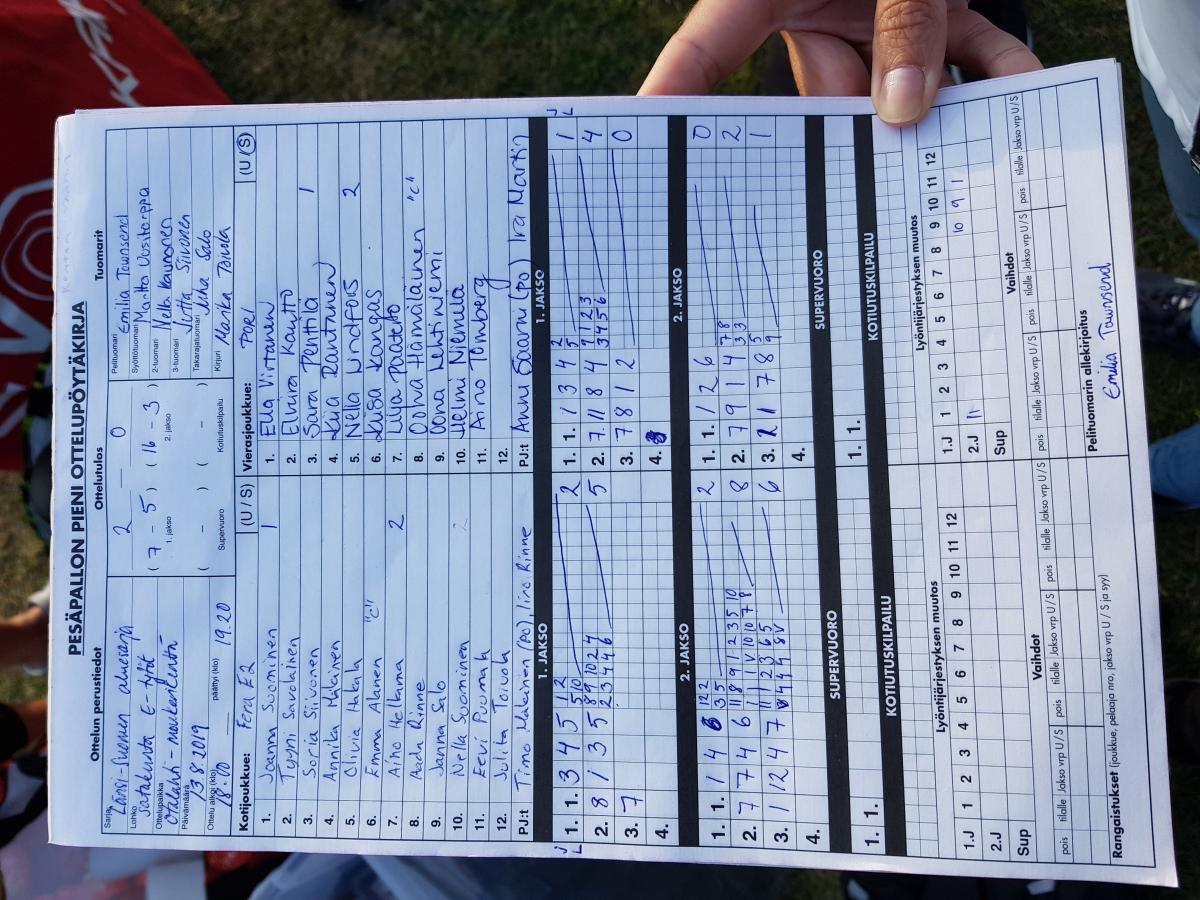 PESÄPALLON PIENI OTTELUPÖYTÄKIRJA
Ottelun perustiedot
Sarja Länsi-Suomen aluesarja
Lohko Satakunta E-tytöt
Ottelupaikka Otalahti -
Päivämäärä 13.8.2019
Ottelu alkoi (klo) 18.00 päättyi (klo) 19.20
Ottelutulos
2 — 0
( 7 - 5 ) ( 16 - 3 )
1. jakso 2. jakso
( - ) ( - )
Supervuoro Kotiutuskilpailu
Tuomarit
Pelituomari Emilia Townsend
Syöttötuomari Martta Uusitorppa
2-tuomari Nella Kaunonen
3-tuomari Jutta Siivonen
Takarajatuomari Nina Salo
Kirjuri Marika Toivola
Kotijoukkue: Fera E2 (U / S)
1. Joanna Suominen 1
2. Tyyni Savolainen
3. Sonja Siivonen
4. Annika Mäkinen
5. Olivia Hakala
6. Emma Alanen "c"
7. Aino Hellama 2
8. Aada Rinne
9. Janna Salo
10. Nella Suominen 2
11. Eevi Puomah
12. Julita Toivola
PJ:t Timo Makinen (po), Iiro Rinne
Vierasjoukkue: PoRi (U / S)
1. Ella Virtanen
2. Elvira Kautto
3. Sara Penttilä 1
4. Kiia Rantanen
5. Nella Lindfors 2
6. Luisa Kangas
7. Lilja Paatelo
8. Oona Hämäläinen "c"
9. Oona Lehtiniemi
10. Helmi Niemelä
11. Aino Tomberg
12.
PJ:t Anni Saarni (po) Ira Martin
1. JAKSO 1. JAKSO
J
L
1. 1. 3 4 5 2
2. 8 1 3 5 5
3. 7
4.
1. 1. 1 3 4 1
2. 7 11 8 4 4
3. 7 8 1 2 0
4.
2. JAKSO 2. JAKSO
1. 1. 1 4 6 2
2. 7 7 4 6 8
3. 1 12 4 7 6
4.
1. 1. 1 2 6 0
2. 7 9 1 4 2
3. 2 1 7 8 1
4.
SUPERVUORO SUPERVUORO
1. 1.
1. 1.
KOTIUTUSKILPAILU KOTIUTUSKILPAILU
Lyöntijärjestyksen muutos
1 2 3 4 5 6 7 8 9 10 11 12
1.J
2.J
Sup
Lyöntijärjestyksen muutos
1 2 3 4 5 6 7 8 9 10 11 12
1.J
2.J 11 10 9 1
Sup
Vaihdot Vaihdot
pois tilalle Jakso vrp U/S pois tilalle Jakso vrp U/S pois tilalle Jakso vrp U/S
pois tilalle Jakso vrp U/S pois tilalle Jakso vrp U/S pois tilalle Jakso vrp U/S
Rangaistukset (joukkue, pelaaja nro, jakso vrp U / S ja syy)
Pelituomarin allekirjoitus
Emilia Townsend